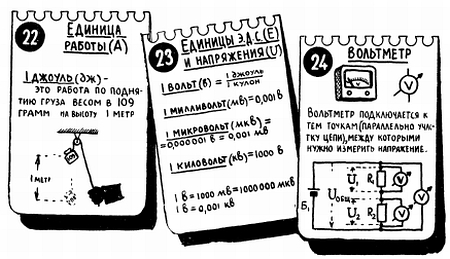 22
Единица
работы(А)
1 джоуль(дж)-
это работа по подня-
тию груза весом в 109
грамм на высоту 1 метр
1 метр
23
Единицы Э.Д.С.(Е)
и напряжения(U)
1 вольт(в) = 1 джоуль
1 кулон
1 милливольт(мв)=0,001в
1 микровольт(мкв)=
=0,000001 в = 0,001 мв
1 киловольт(кв)=1000 в
1 в=1000 мв=1000000 мкв
1 в=0,001 кв
24
Вольтметр
V
Вольтметр подключается к
тем точкам(параллельно учас-
тку цепи), между которыми
нужно измерить напряжение.
Б1
Uобщ
U1
R1
V
U2
R2
V
V